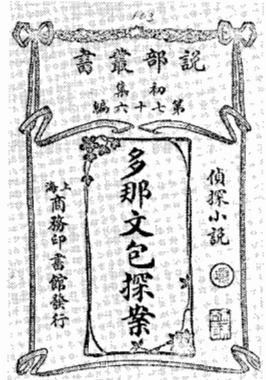 說部叢書
初集
第七十六編
偵探小說
多那文包探案
上海商務印書館發行